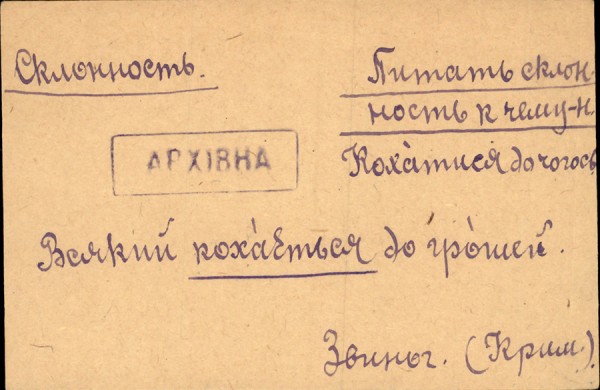 Склонность.
Питать склон-
ность к чему-н.
Коха́тися до чогось
АРХІВНА
Всякий коха́еться до гро́шей.
Звиног. (Крим.)